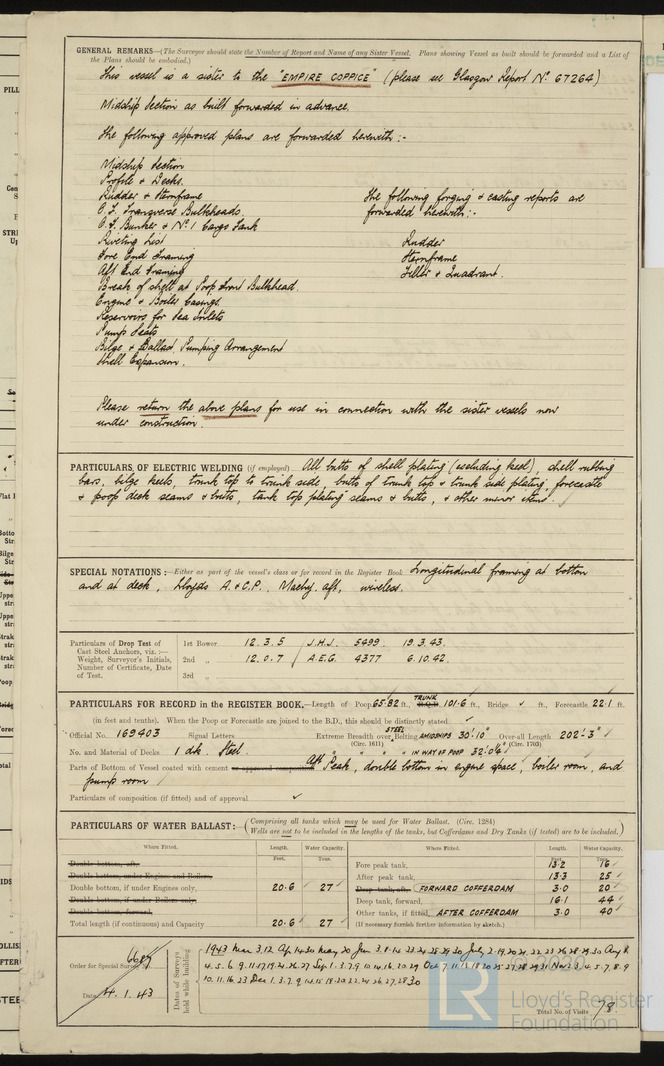 GENERAL REMARKS—(The Surveyor should state the Number of Report and Name of any Sister Vessel. Plans showing Vessel as built should be forwarded and a List of
the Plans should be embodied.)
This vessel is a sister to the "EMPIRE COPPICE" (please see Glasgow Report No 67264)
Midship Section as built forwarded in advance.
The following approved plans are forwarded herewith:-
Midship Section
Profile & Decks.
Rudder & Sternframe
O.T. Transverse Bulkheads.
O.F. Bunker & No 1 Cargo Tank
Riveting List
Fore End Framing
Aft End Framing
Break of shell at Poop Front Bulkhead.
Engine & Boiler Casings.
Reservoirs for Sea Inlets
Pump Seats
Bilge & Ballast Pumping Arrangement
Shell Expansion.
The following forging & casting reports are
forwarded herewith:-
Rudder
Sternframe
Tiller & Quadrant.
Please return the above plans for use in connection with the sister vessels now
under construction.
PARTICULARS OF ELECTRIC WELDING (if employed) All butts of shell plating (excluding keel), shell rubbing
bars, bilge keels, trunk top to trunk side, butts of trunk top & trunk side plating, forecastle
& poop deck seams & butts, tank top plating seams & butts, & other minor items.
SPECIAL NOTATIONS:—Either as part of the vessel's class or for record in the Register Book. Longitudinal framing at bottom
and at deck, Lloyds A. & C.P., Machy. aft, wireless.
Particulars of Drop Test of
Cast Steel Anchors, viz.:—
Weight, Surveyor's Initials,
Number of Certificate, Date
of Test.
1st Bower 12.3.5 J.H.J. 5499 19.3.43.
2nd „ 12.0.7 A.E.G. 4377 6.10.42.
3rd „
PARTICULARS FOR RECORD in the REGISTER BOOK.—Length of Poop 65.82 ft., TRUNK R.Q.D. 101.6 ft., Bridge ✓ ft., Forecastle 22.1 ft.
(in feet and tenths). When the Poop or Forecastle are joined to the B.D., this should be distinctly stated ✓
Official No. 169403 Signal Letters Extreme Breadth over STEEL Belting AMIDSHIPS 30'-10" Over-all Length 202'-3"
(Circ. 1611) (Circ. 1703)
No. and Material of Decks 1 dk. Steel. " " " IN WAY OF POOP
Parts of Bottom of Vessel coated with cement or approved composition Aft Peak, double bottom in engine space, boiler room, and
pump room
Particulars of composition (if fitted) and of approval ✓
PARTICULARS OF WATER BALLAST:— (Comprising all tanks which may be used for Water Ballast. (Circ. 1284)
Wells are not to be included in the lengths of the tanks, but Cofferdams and Dry Tanks (if tested) are to be included.)
Where Fitted. Length. Water Capacity.
Feet. Tons.
Double bottom, aft,
Double bottom, under Engines and Boilers,
Double bottom, if under Engines only, 20.6 27
Double bottom, if under Boilers only,
Double bottom, forward,
Total length (if continuous) and Capacity 20.6 27
Where Fitted. Length. Water Capacity.
Feet. Tons.
Fore peak tank, 13.2 76
After peak tank, 13.3 25
Deep tank, aft, FORWARD COFFERDAM 3.0 20
Deep tank, forward, 16.1 44
Other tanks, if fitted, AFTER COFFERDAM 3.0 40
(If necessary furnish further information by sketch.)
Order for Special Survey No. 6687
Date 4.1.43
Dates of Surveys
held while building
1943 Mar 3,12 Apr 14 30 May 20 Jun
Total No. of Visits 78.
© 2020
LR
Lloyd's Register
Foundation